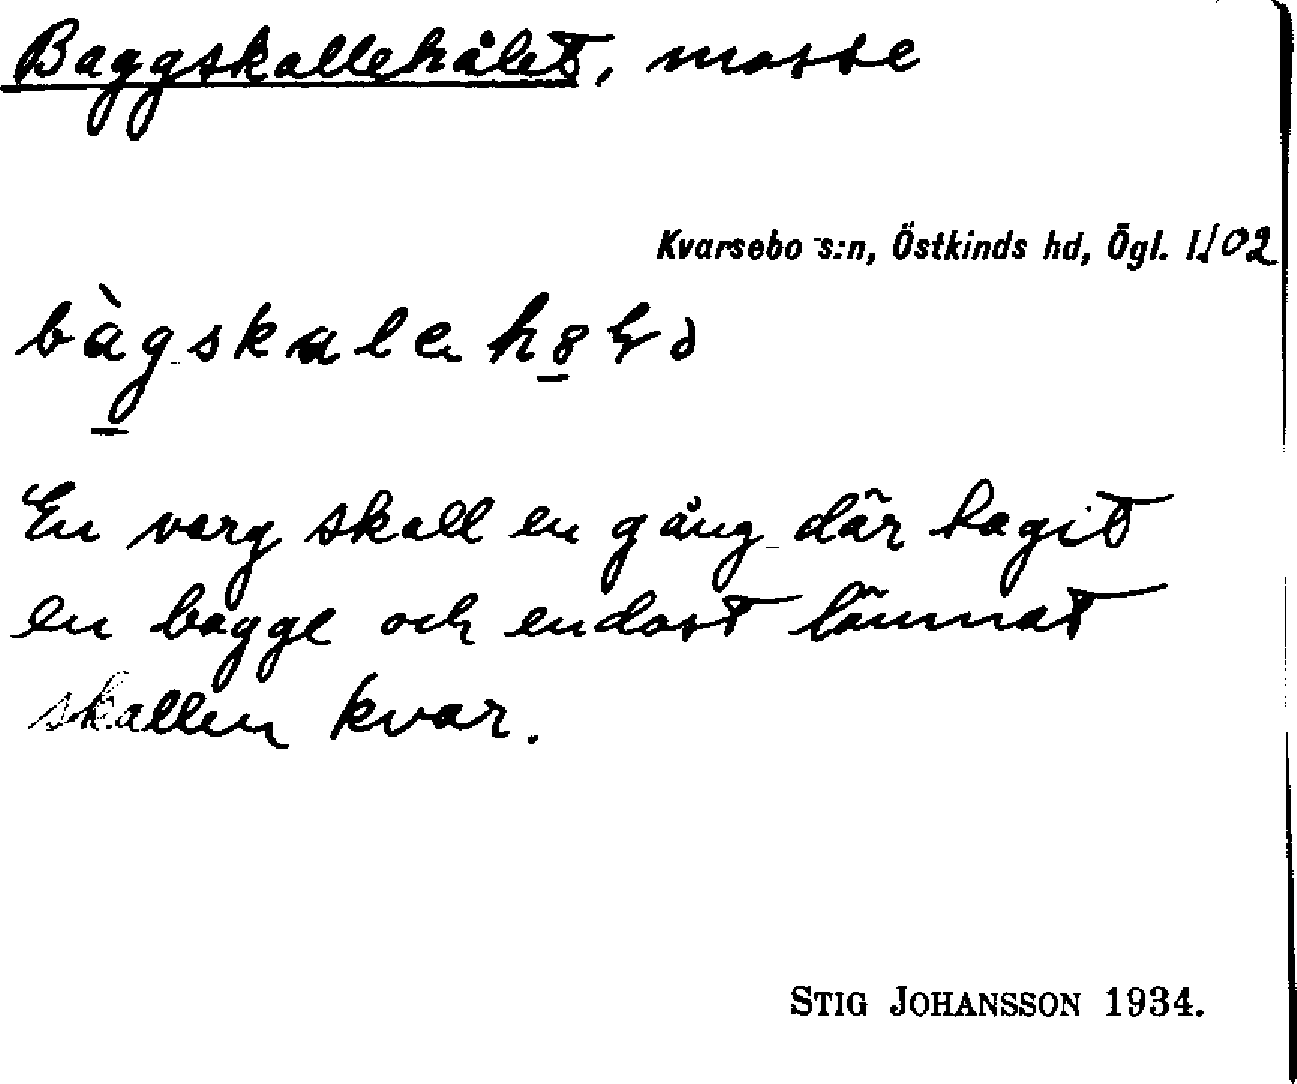 Baggskallehålet, mosse
Kvarsebo s:n, Östkinds hd, Ögl. l.
En varg skall en gång där tagit
en bagge och endast lämnat
skallen kvar.
STIG JOHANSSON 1934.